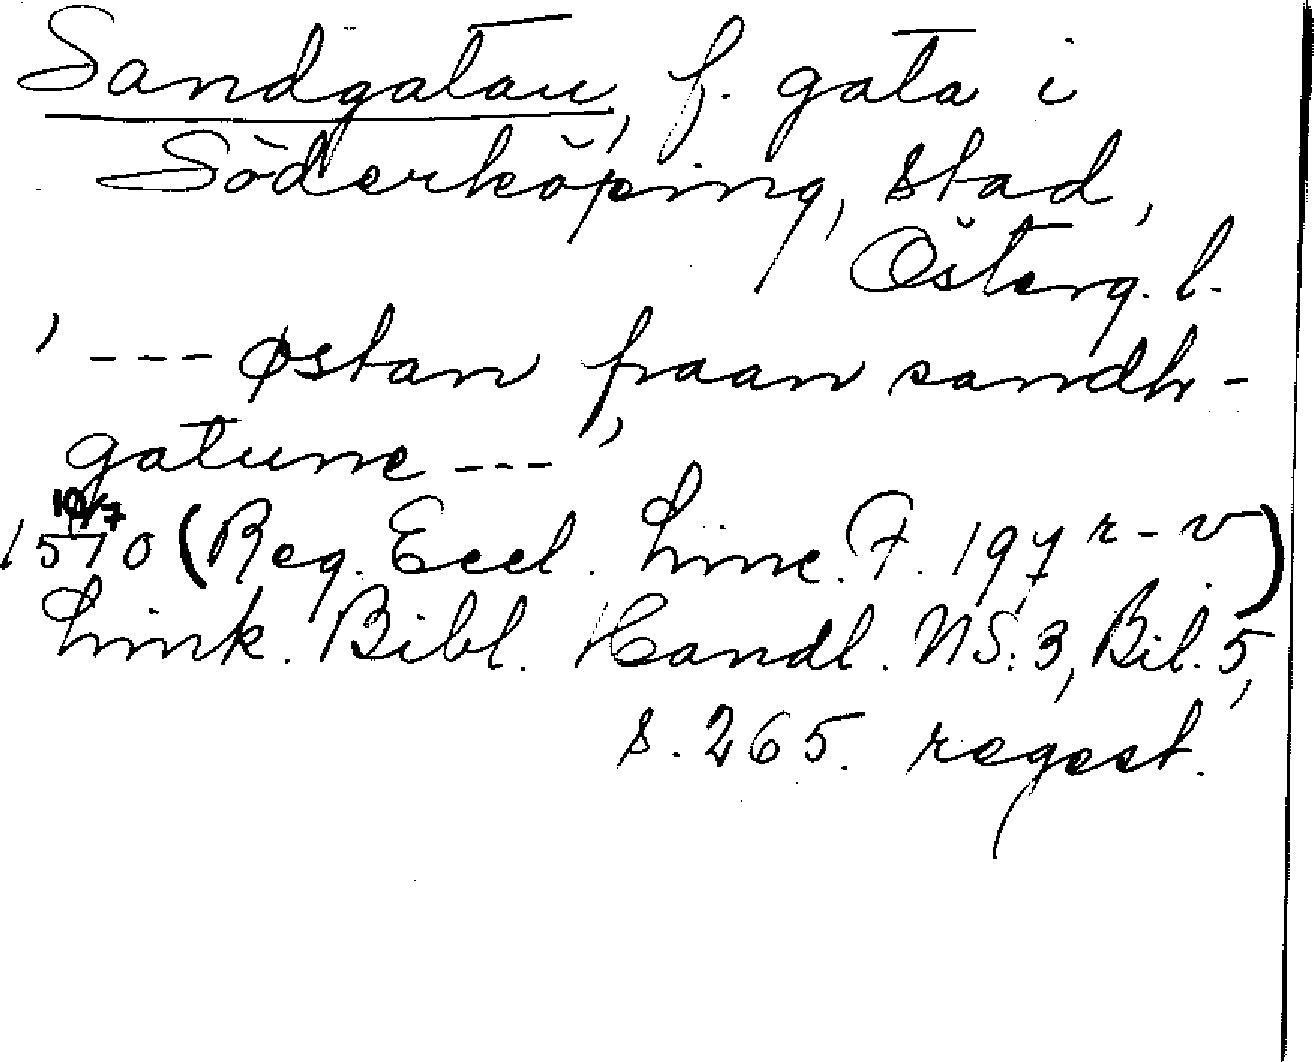 Sandgatan, f. gata i
Söderköping, stad,
Österg. l.
' --- østan fraan sandh-
gatune --- '
10/7
1510 (Reg. Eccl. Linc. F. 197 r-v)
Link. Bibl. Handl. NS: 3, Bil. 5,
s. 265. regest.